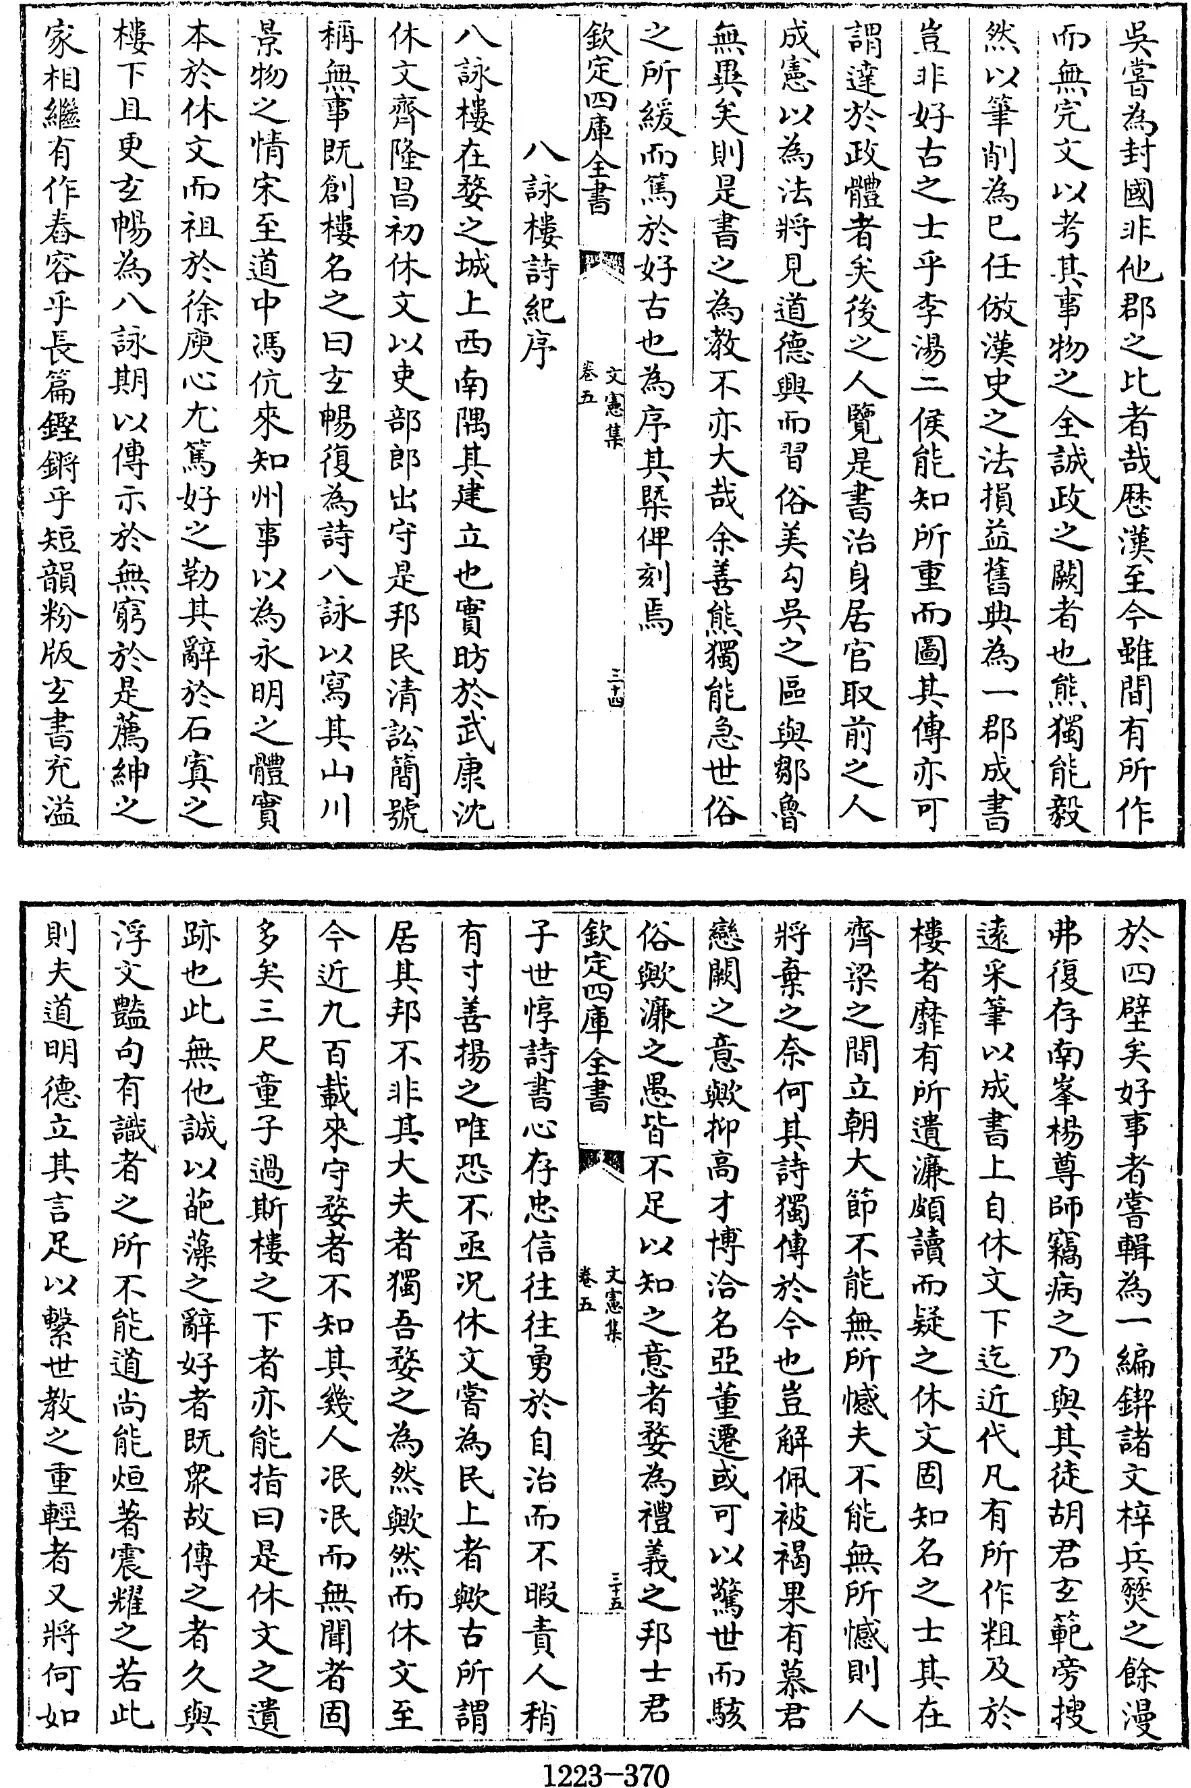 吳嘗為封國非他郡之比者哉歴漢至今雖間有所作
而無完文以考其事物之全誠政之闕者也熊獨能毅
然以筆削為已任倣漢史之法損益舊典為一郡成書
豈非好古之士乎李湯二侯能知所重而圖其傳亦可
謂達於政體者矣後之人覽是書治身居官取前之人
成憲以為法將見道德興而習俗美勾吳之區與鄒魯
無異矣則是書之為教不亦大哉余善熊獨能急世俗
之所緩而篤於好古也為序其槩俾刻焉
欽定四庫全書
文憲集
卷五
三十四
八詠樓詩紀序
八詠樓在婺之城上西南隅其建立也實昉於武康沈
休文齊隆昌初休文以吏部郎出守是邦民清訟簡號
稱無事既創樓名之曰玄暢復為詩八詠以寫其山川
景物之情宋至道中馮伉來知州事以為永明之體實
本於休文而祖於徐庾心尤篤好之勒其辭於石寘之
樓下且更玄暢為八詠期以傳示於無窮於是薦紳之
家相繼有作舂容乎長篇鏗鏘乎短韻粉版玄書充溢
於四壁矣好事者嘗輯為一編鍥諸文梓兵燹之餘漫
弗復存南峯楊尊師竊病之乃與其徒胡君玄範旁搜
逺采筆以成書上自休文下迄近代凡有所作粗及於
樓者靡有所遺濂頗讀而疑之休文固知名之士其在
齊梁之間立朝大節不能無所憾夫不能無所憾則人
將棄之奈何其詩獨傳於今也豈解佩被褐果有慕君
戀闕之意歟抑高才博洽名亞董遷或可以驚世而駭
俗歟濂之愚皆不足以知之意者婺為禮義之邦士君
欽定四庫全書
文憲集
卷五
三十五
子世惇詩書心存忠信往往勇於自治而不暇責人稍
有寸善揚之唯恐不亟况休文嘗為民上者歟古所謂
居其邦不非其大夫者獨吾婺之為然歟然而休文至
今近九百載來守婺者不知其幾人泯泯而無聞者固
多矣三尺童子過斯樓之下者亦能指曰是休文之遺
跡也此無他誠以葩藻之辭好者既衆故傳之者久與
浮文豔句有識者之所不能道尚能烜著震耀之若此
則夫道明德立其言足以繫世教之重輕者又將何如
1223-370